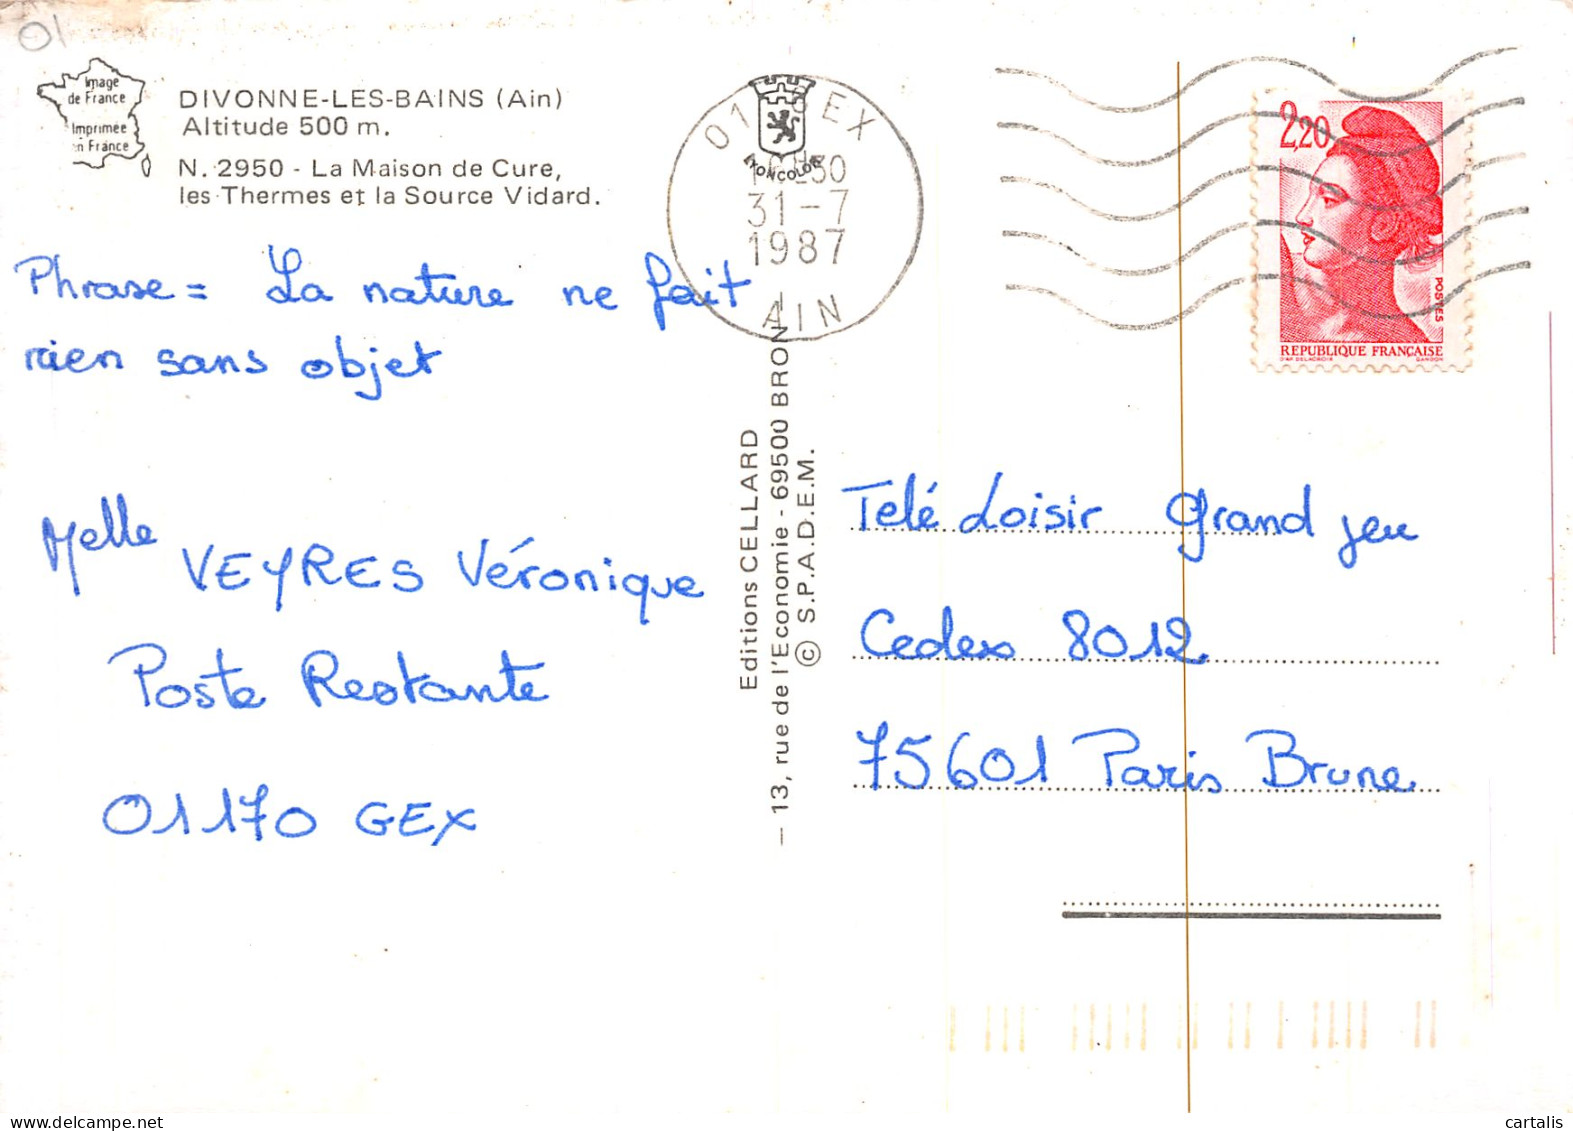 01
Image
de France
Imprimée
en France
DIVONNE-LES-BAINS (Ain)
Altitude 500 m.
N. 2950 - La Maison de Cure,
les Thermes et la Source Vidard.
Phrase = La nature ne fait
rien sans objet
Melle VEYRES Véronique
Poste Restante
01170 GEX
01 GEX
LYONCOLOR
31-7
1987
AIN
Editions CELLARD
13, rue de l'Economie - 69500 BRON
© S.P.A.D.E.M.
2,20
POSTES
REPUBLIQUE FRANÇAISE
D'AP. DELACROIX GANDON
Telé Loisir Grand jeu
Cedex 8012
75601 Paris Brune
cartalis
www.delcampe.net